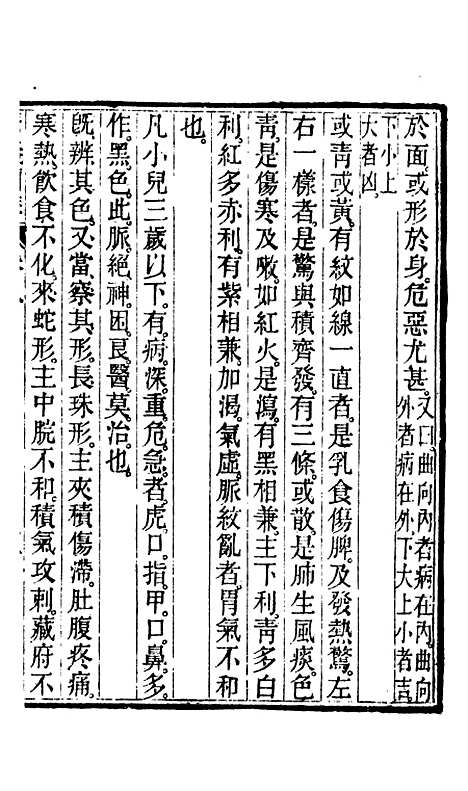 於面。或形於身。危惡尤甚。又曰。曲向內者病在內。曲向外者病在外。下大上小者吉。
下小上大者凶。
或靑或黃。有紋如線一直者。是乳食傷脾。及發熱驚。左
右一樣者。是驚與積齊發。有三條。或散。是肺生風痰。色
靑。是傷寒及嗽。如紅火。是瀉。有黑相兼。主下利。靑多白
利。紅多赤利。有紫相兼。加渴。氣虛。脈紋亂者。胃氣不和
也。
凡小兒三歲以下。有病深重危急者。虎口。指甲。口鼻。多
作黑色。此脈絕神困。良醫莫治也。
旣辨其色。又當察其形。長珠形。主夾積傷滯。肚腹疼痛。
寒熱。飮食不化。來蛇形。主中脘不和。積氣攻刺。藏府不